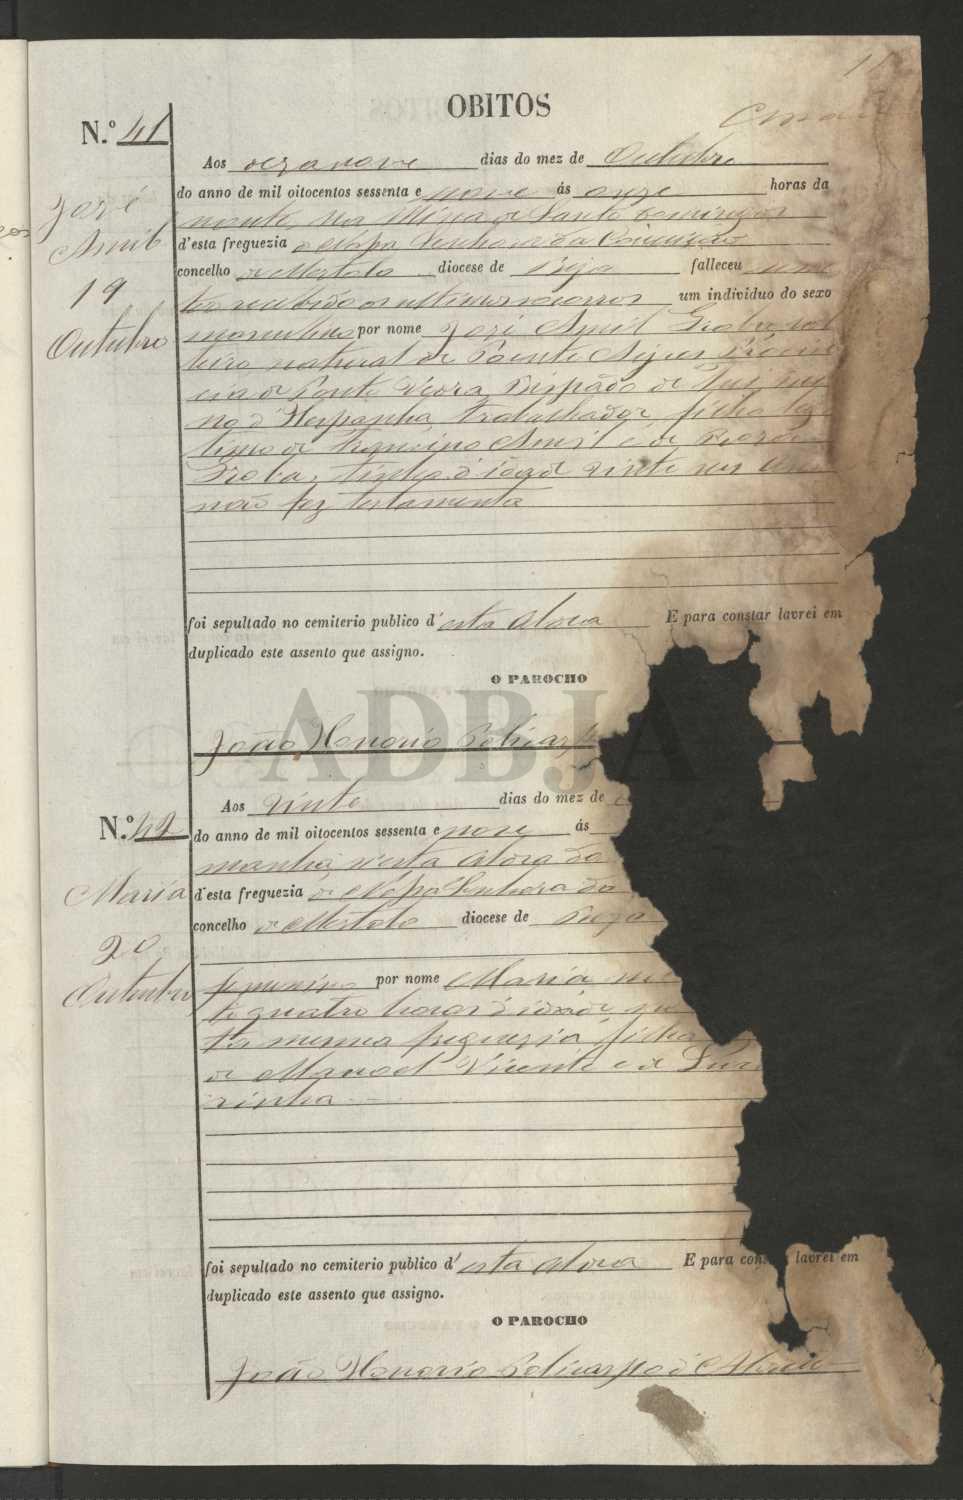 OBITOS
N.º 41
José
Amil
19
Outubro
Aos dezanove dias do mez de Outubro
do anno de mil oitocentos sessenta e nove ás onze horas da
noute, na Mina de Santo Domingos
d'esta freguezia de Nossa Senhora da Conceição
concelho de Mertola diocese de Beja falleceu nam
tes recebido os ultimos socorros um individuo do sexo
masculino por nome José Amil Groba, sol
teiro natural de Ponte
cia de Ponte Vedra Bispado de Tui, rei
no d'Hespanha, trabalhador, filho legi
timo de Amil e de
Groba, tinha d'idade vinte
não fez testamento
foi sepultado no cemiterio publico d'esta Aldeia E para constar lavrei em
duplicado este assento que assigno.
O PAROCHO
João Honorio Policarp
ADBJA
N.º 42
Maria
20
Outubro
Aos vinte dias do mez de
do anno de mil oitocentos sessenta e nove ás
manhã, n'esta Aldeia da
d'esta freguezia de Nossa Senhora da
concelho de Mertola diocese de Beja
femenino por nome Maria
te quatro horas d'idade
ta mesma freguezia, filha
de Manoel Vicente e de
rinha
foi sepultado no cemiterio publico d'esta Aldeia E para cons lavrei em
duplicado este assento que assigno.
O PAROCHO
João Honorio Policarpo d'